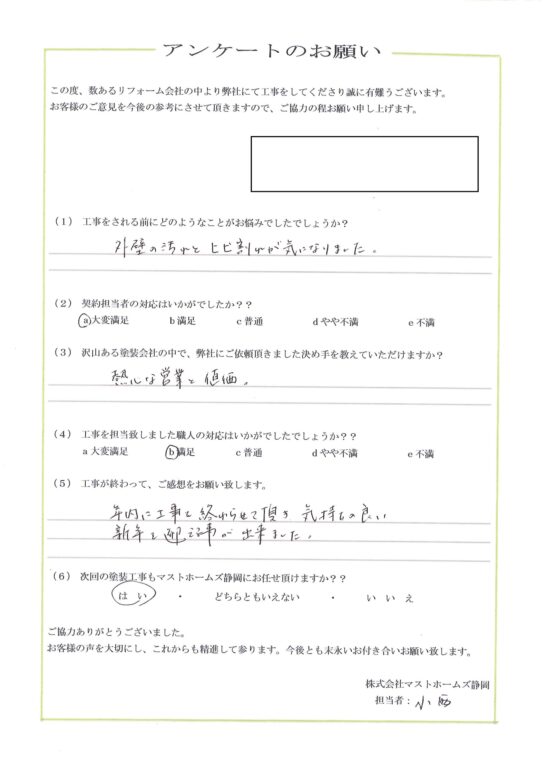 アンケートのお願い
この度、数あるリフォーム会社の中より弊社にて工事をしてくださり誠に有難うございます。
お客様のご意見を今後の参考にさせて頂きますので、ご協力の程お願い申し上げます。
(1) 工事をされる前にどのようなことがお悩みでしたでしょうか？
外壁の汚れと ヒビ割れが気になりました。
(2) 契約担当者の対応はいかがでしたか？？
a 大変満足 b 満足 c 普通 d やや不満 e 不満
(3) 沢山ある塗装会社の中で、弊社にご依頼頂きました決め手を教えていただけますか？
熱心な営業と値価。
(4) 工事を担当致しました職人の対応はいかがでしたでしょうか？？
a 大変満足 b 満足 c 普通 d やや不満 e 不満
(5) 工事が終わって、ご感想をお願い致します。
年内に工事を終わらせて頂き 気持ちの良い
新年を迎える事が出来ました。
(6) 次回の塗装工事もマストホームズ静岡にお任せ頂けますか？？
はい ・ どちらともいえない ・ いいえ
ご協力ありがとうございました。
お客様の声を大切にし、これからも精進して参ります。今後とも末永いお付き合いお願い致します。
株式会社マストホームズ静岡
担当者：小西